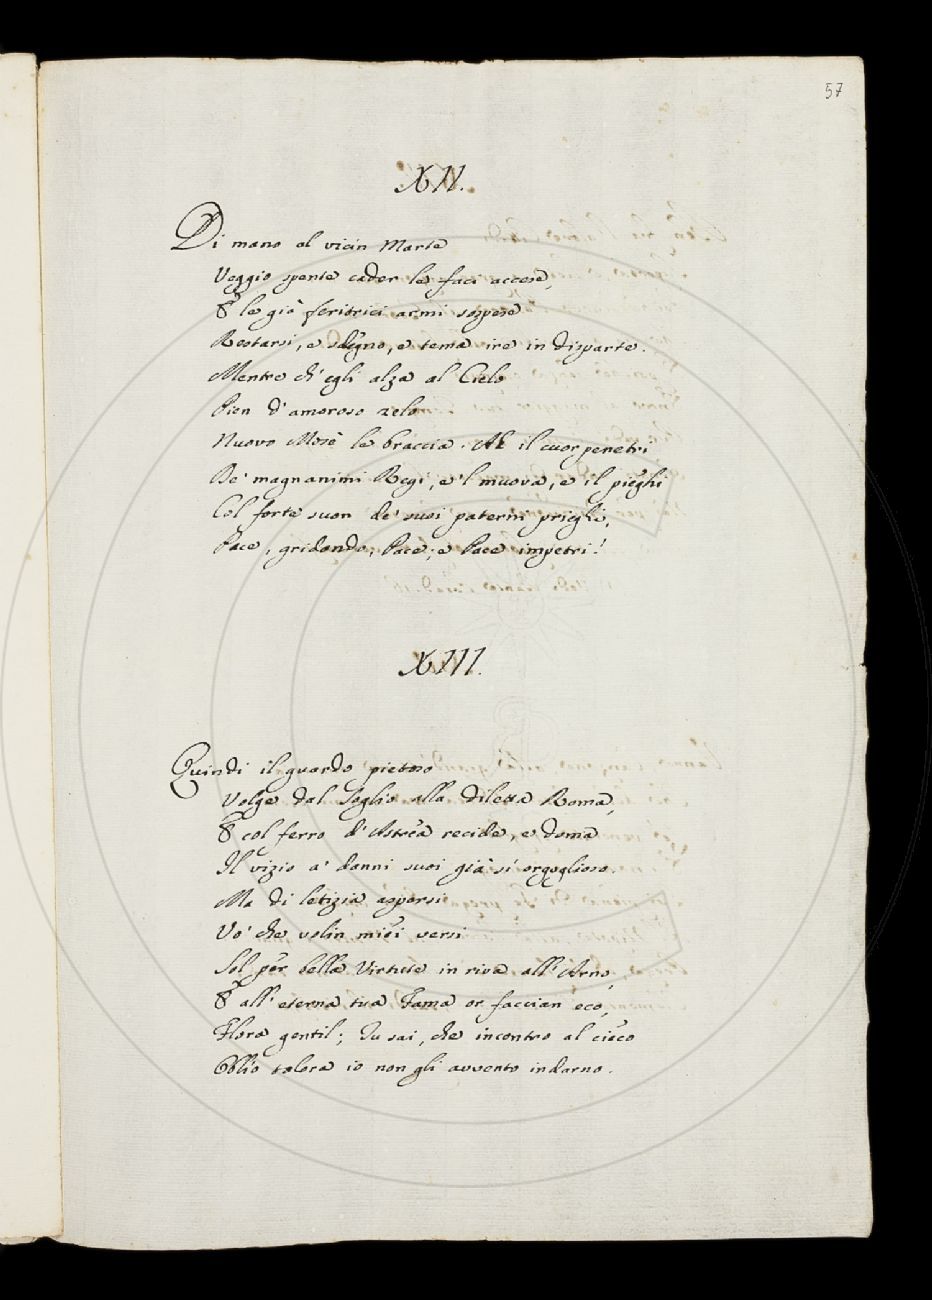 57
XII.
Di mano al vicin Marte
Veggio spente cader le faci accese,
E le già feritrici armi sospese
Restarsi, e sdegno, e tema ire in disparte.
Mentre ch'egli alza al Cielo
Pien d'amoroso zelo
Nuovo Mosè le braccia. Ah il cuor penetri
De' magnanimi Regi, e 'l muova, e il pieghi
Col forte suon de' suoi paterni prieghi,
Pace, gridando, Pace; e Pace impetri!
XIII.
Quindi il guardo pietoso
Volge dal Soglio alla diletta Roma,
E col ferro d'Astrea recide, e doma
Il vizio a' danni suoi già sì orgoglioso.
Ma di letizia aspersi
Vo' che volin miei versi
Sol per bella Virtute in riva all'Arno,
E all'eterna tua Fama or faccian eco,
Flora gentil; Tu sai, che incontro al cieco
Obblio talora io non gli avvento indarno.